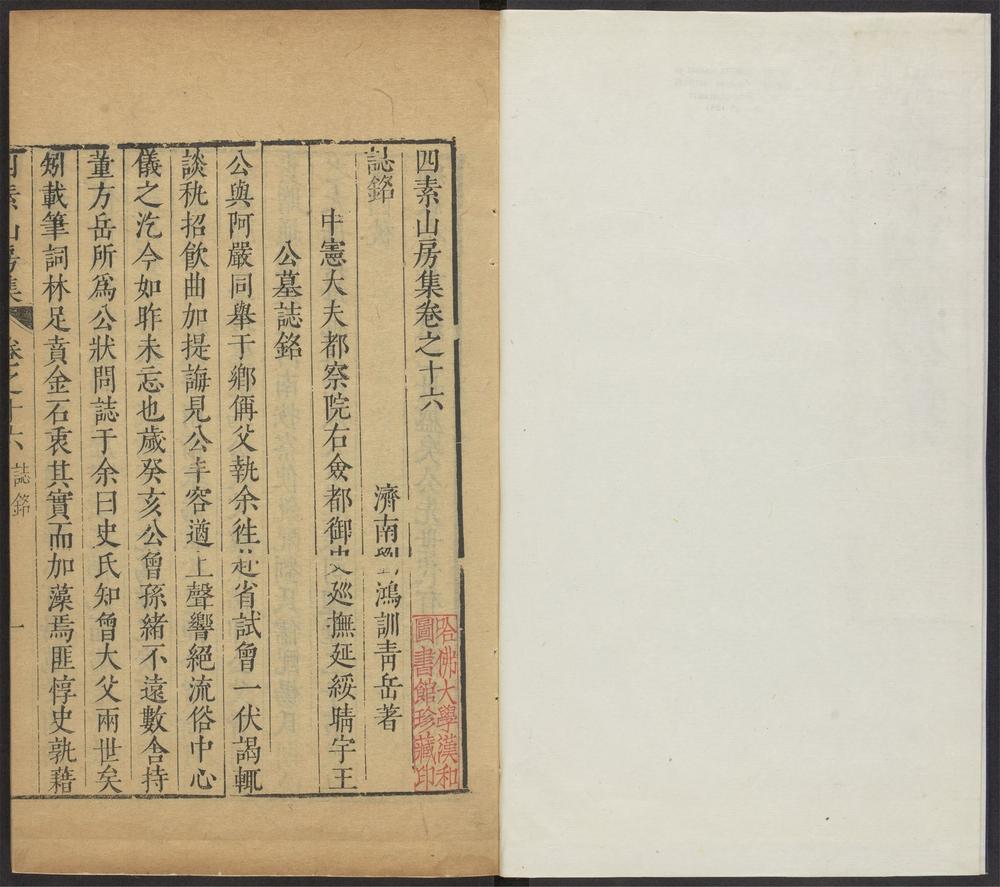 四素山房集卷之十六
濟南劉鴻訓青岳著
誌銘
中憲大夫都察院右僉都御史廵撫延綏晴宇王
公墓誌銘
公與阿嚴同舉于鄉偁父執余徃赴省試曾一伏謁輒
談秇招飲曲加提誨見公丰容遒上聲響絕流俗中心
儀之迄今如昨未忘也歲癸亥公曾孫緒不遠數舍持
董方岳所爲公狀問誌于余曰史氏知曾大父兩世矣
矧載筆詞林足賁金石衷其實而加藻焉匪惇史孰藉
四素山房集
卷之十六
誌銘
一
哈佛大學漢和
圖書館珍藏印